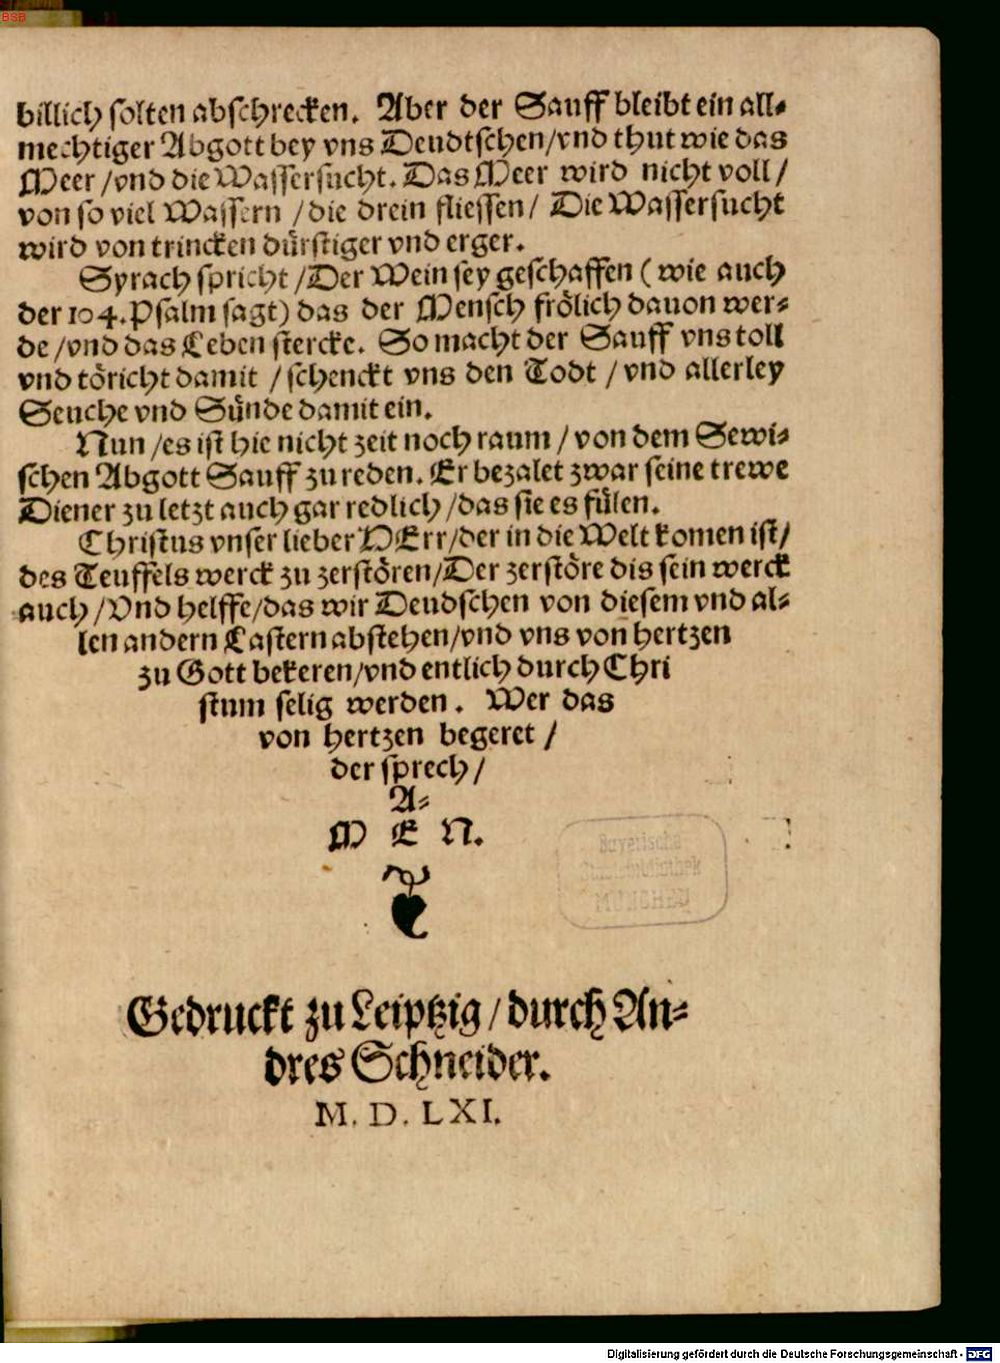 BSB
billich solten abschrecken. Aber der Sauff bleibt ein all⸗
mechtiger Abgott bey vns Deudtschen/vnd thut wie das
Meer/vnd die Wassersucht. Das Meer wird nicht voll/
von so viel Wassern/die drein fliessen/ Die Wassersucht
wird von trincken dürstiger vnd erger.
Syrach spricht/Der Wein sey geschaffen (wie auch
der 104. Psalm sagt) das der Mensch frölich dauon wer⸗
de/vnd das Leben stercke. So macht der Sauff vns toll
vnd töricht damit/schenckt vns den Todt/vnd allerley
Seuche vnd Sünde damit ein.
Nun/es ist hie nicht zeit noch raum/von dem Sewi⸗
schen Abgott Sauff zu reden. Er bezalet zwar seine trewe
Diener zu letzt auch gar redlich/das sie es fülen.
Christus vnser lieber HErr/der in die Welt komen ist/
des Teuffels werck zu zerstören/Der zerstöre dis sein werck
auch/Vnd helffe/das wir Deudschen von diesem vnd al⸗
len andern Lastern abstehen/vnd vns von hertzen
zu Gott bekeren/vnd entlich durch Chri
stum selig werden. Wer das
von hertzen begeret/
der sprech/
A⸗
M E N.
Bayerische
Staatsbibliothek
MÜNCHEN
Gedruckt zu Leiptzig/durch An⸗
dres Schneider.
M. D. LXI.
Digitalisierung gefördert durch die Deutsche Forschungsgemeinschaft - DFG